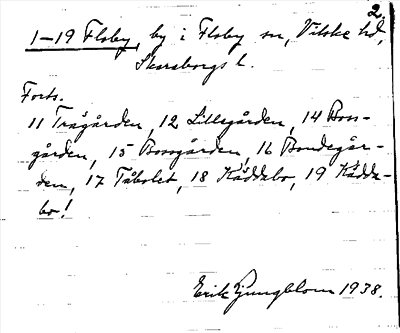 2.
1–19 Floby, by i Floby sn, Vilske hd,
Skaraborgs l.
Forts.
11 Trägården, 12 Lillegården, 14 Boss-
gården, 15 Bossgården, 16 Bondegår-
den, 17 Tåbolet, 18 Käddabo, 19 Kädda-
bo!
Erik Ljungblom 1938.